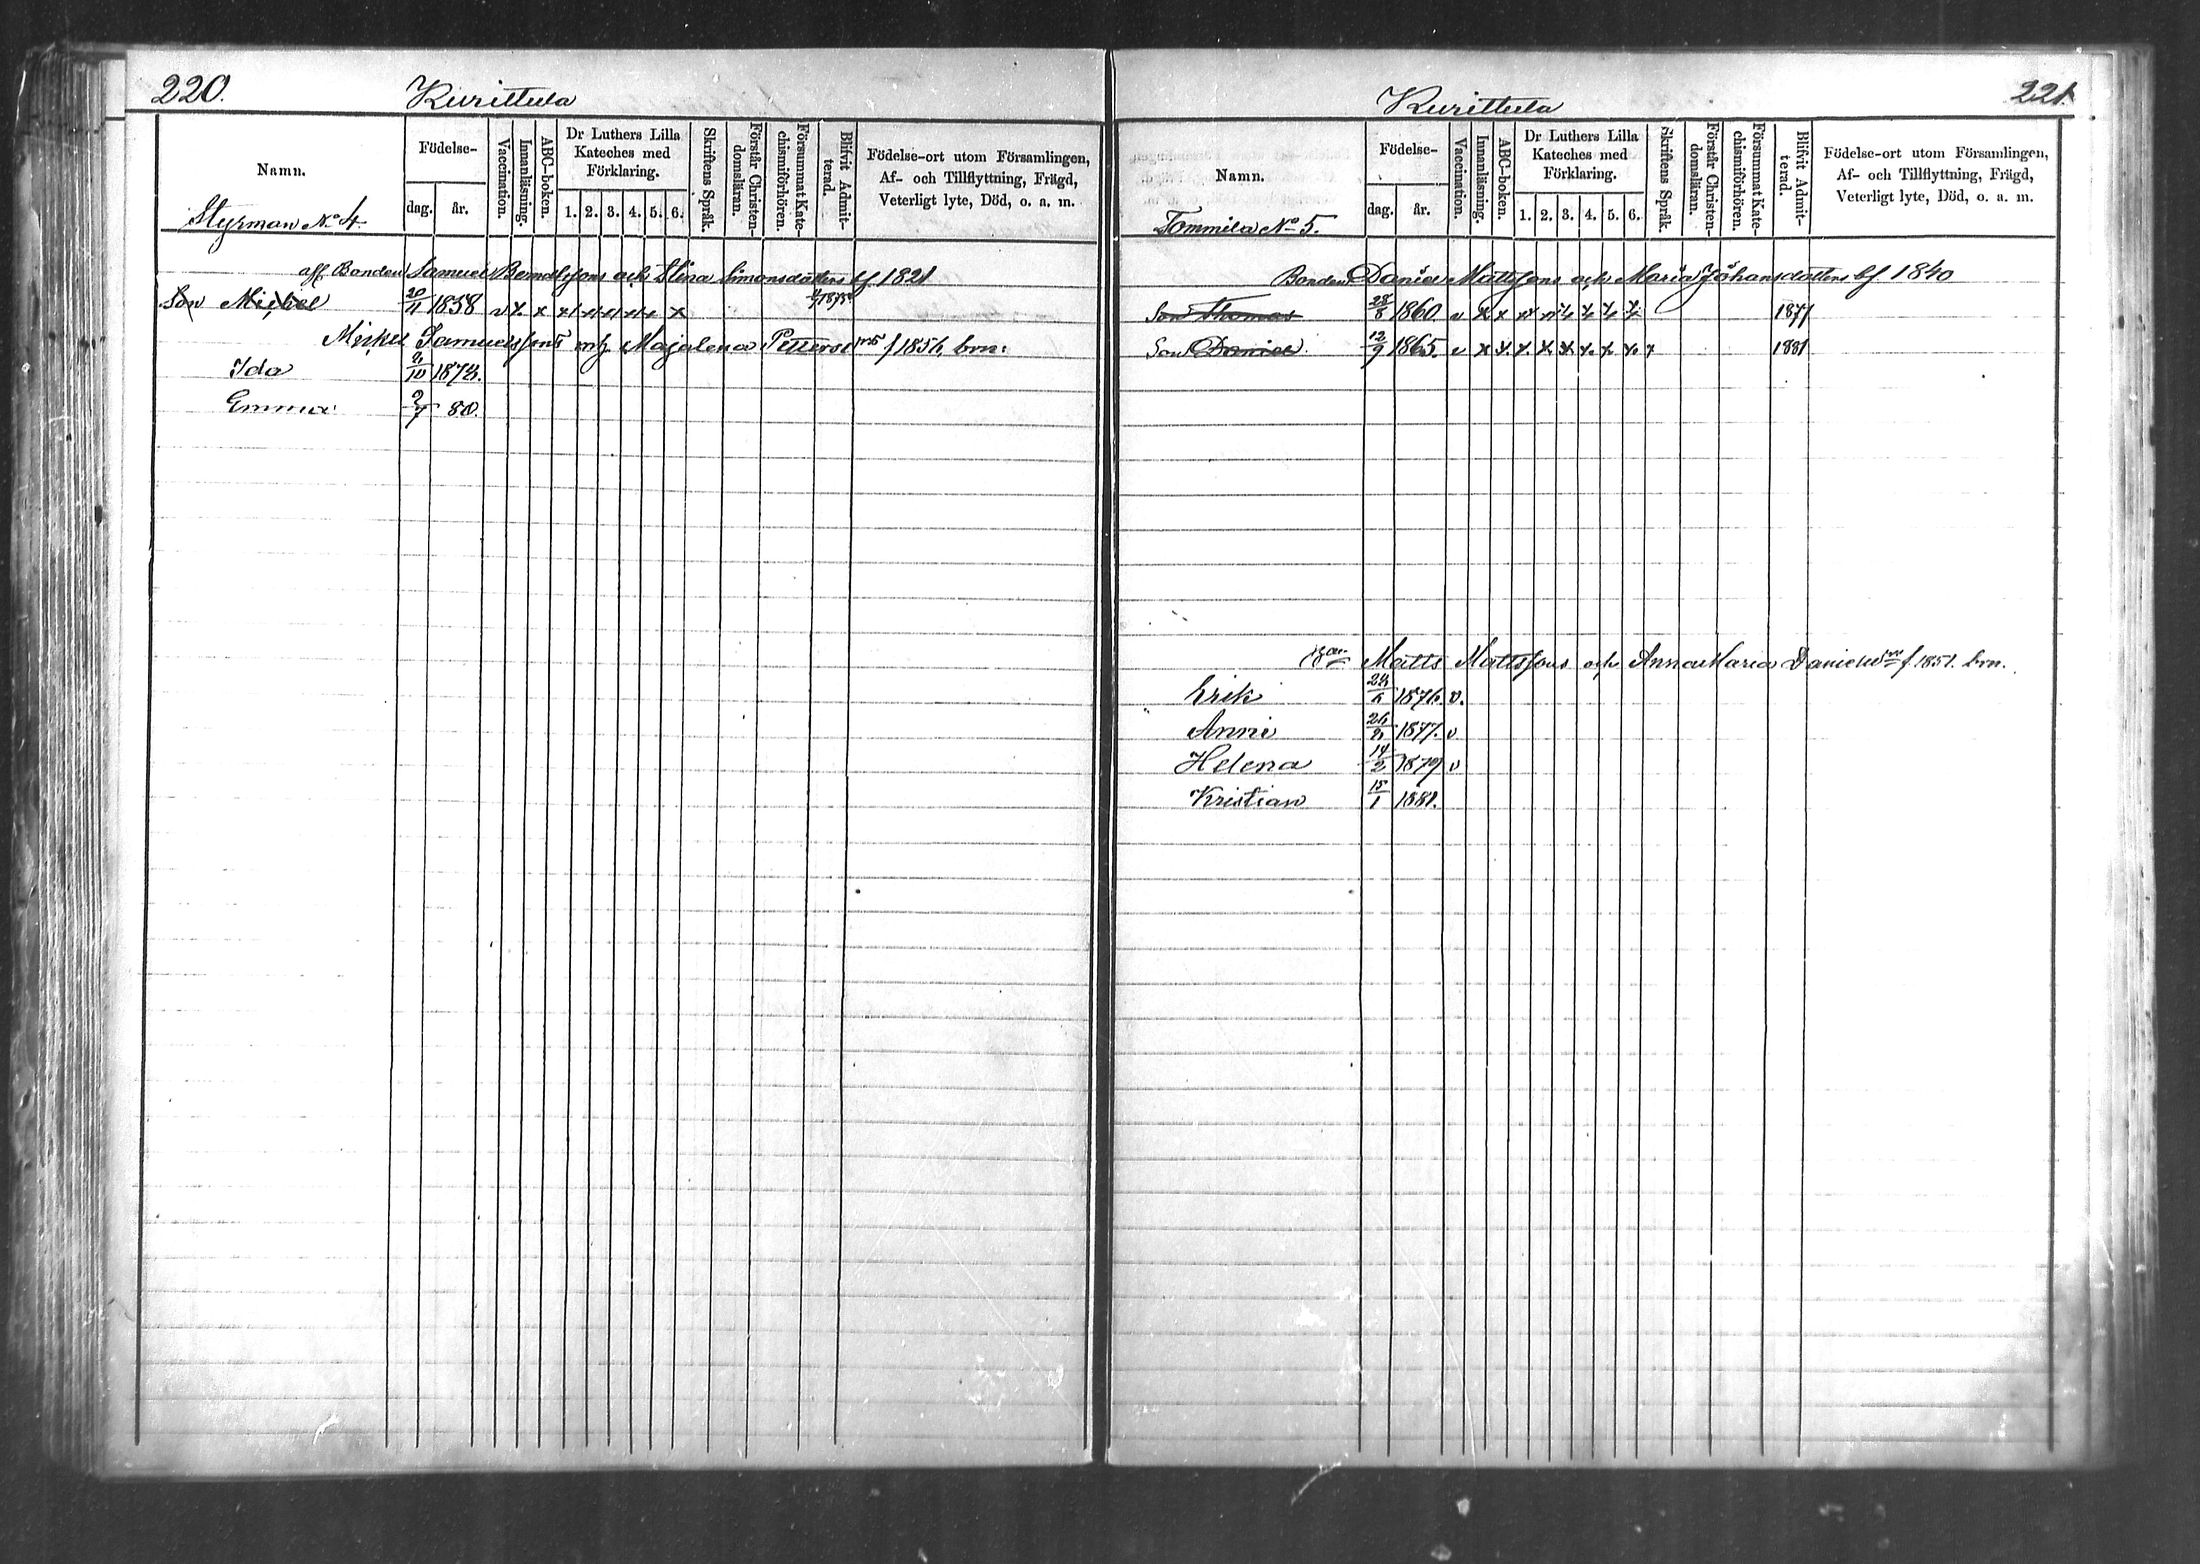 220.
Kurittula
Namn.
Födelse-
dag. år.
Vaccination.
Innanläsning.
ABC-boken.
Dr Luthers Lilla
Kateches med
Förklaring.
1. 2. 3. 4. 5. 6.
Skriftens Språk.
Förstår Christen-
domsläran.
Försummat Kate-
chismiförhören.
Blifvit Admit-
terad.
Födelse-ort utom Församlingen,
Af- och Tillflyttning, Frägd,
Veterligt lyte, Död, o. a. m.
Styrman No 4
aff. Bonden Samuel Berndtssons och Stina Simonsdotters bf 1821
Son Michel 20/11 1858 v x x x x x x x x 1875
Mickel Samuelssons Majalena f 1856. brn:
Ida 10 187
Emma 2/7 80.
221.
Kurittula
Namn.
Födelse-
dag. år.
Vaccination.
Innanläsning.
ABC-boken.
Dr Luthers Lilla
Kateches med
Förklaring.
1. 2. 3. 4. 5. 6.
Skriftens Språk.
Förstår Christen-
domsläran.
Försummat Kate-
chismiförhören.
Blifvit Admit-
terad.
Födelse-ort utom Församlingen,
Af- och Tillflyttning, Frägd,
Veterligt lyte, Död, o. a. m.
Tommila No 5.
Bonden Daniel Mattssons och Maria Johansdotters bf 1840
Son Thomas 28 1860 v x x x x x x x x 1877
Son Daniel. 12/9 1865. v x x x x x x x x x 1881
Matts Mattssons och Anna Maria f. 1851. brn.
Erik 1876. v.
Anni 1877. v
Helena 14/2 1879 v
Kristian 15/1 1881.